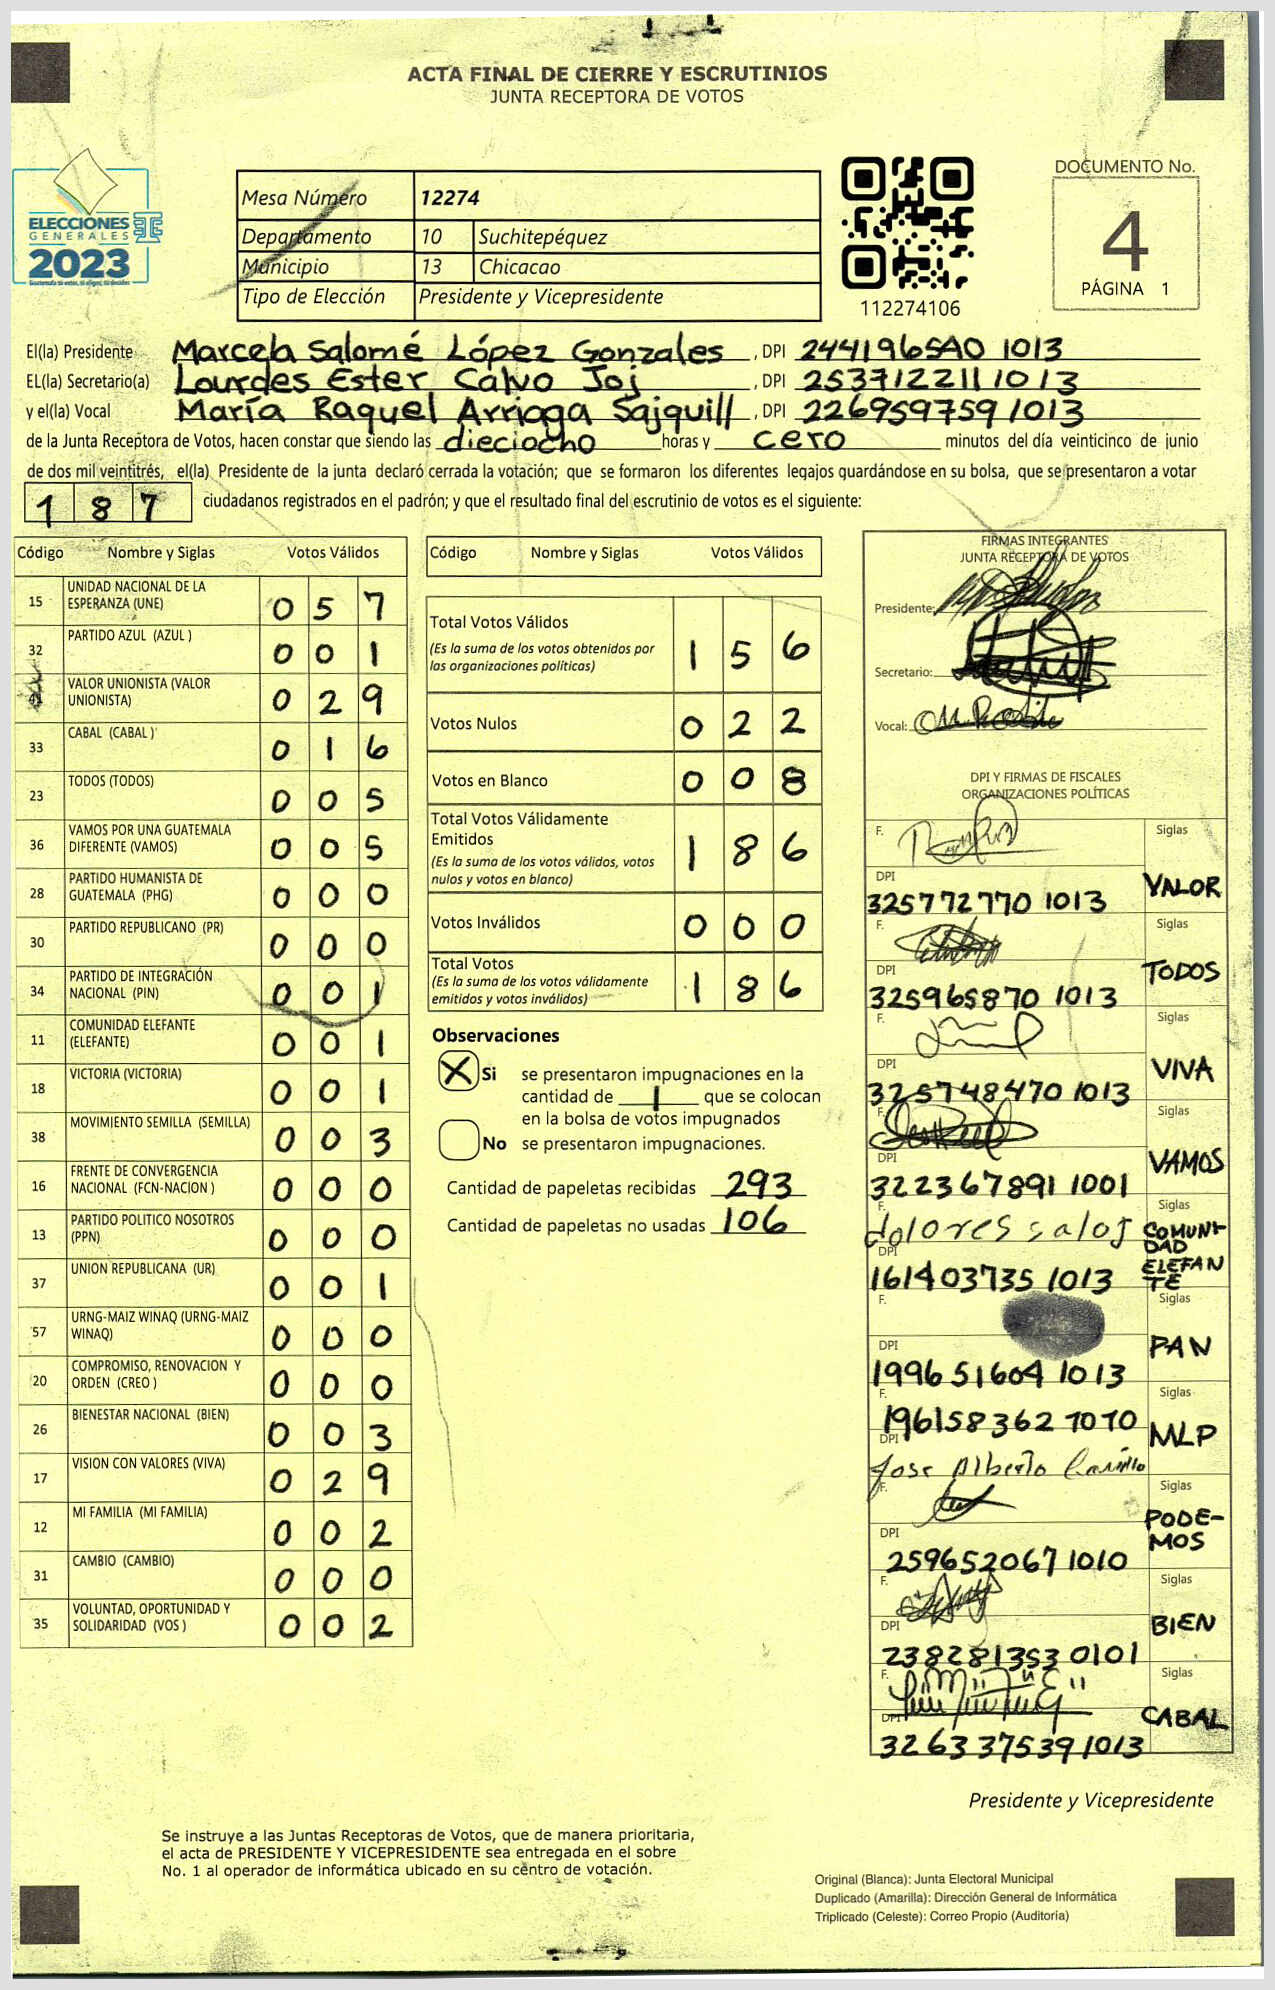 ACTA FINAL DE CIERRE Y ESCRUTINIOS
JUNTA RECEPTORA DE VOTOS
ELECCIONES
GENERALES
2023
Mesa Número 12274
Departamento 10 Suchitepéquez
Municipio 13 Chicacao
Tipo de Elección Presidente y Vicepresidente
112274106
DOCUMENTO No.
4
PÁGINA 1
El(la) Presidente Marcela Salomé López Gonzales, DPI 2441965A0 1013
EL(la) Secretario(a) Lourdes Ester Calvo Joj, DPI 253712211 1013
y el(la) Vocal María Raquel Arriaga Sajquill, DPI 226959759 1013
de la Junta Receptora de Votos, hacen constar que siendo las dieciocho horas y cero minutos del día veinticinco de junio
de dos mil veintitrés, el(la) Presidente de la junta declaró cerrada la votación; que se formaron los diferentes legajos guardándose en su bolsa, que se presentaron a votar
187 ciudadanos registrados en el padrón; y que el resultado final del escrutinio de votos es el siguiente:
Código Nombre y Siglas Votos Válidos
15 UNIDAD NACIONAL DE LA ESPERANZA (UNE) 057
32 PARTIDO AZUL (AZUL ) 001
41 VALOR UNIONISTA (VALOR UNIONISTA) 029
33 CABAL (CABAL ) 016
23 TODOS (TODOS) 005
36 VAMOS POR UNA GUATEMALA DIFERENTE (VAMOS) 005
28 PARTIDO HUMANISTA DE GUATEMALA (PHG) 000
30 PARTIDO REPUBLICANO (PR) 000
34 PARTIDO DE INTEGRACIÓN NACIONAL (PIN) 001
11 COMUNIDAD ELEFANTE (ELEFANTE) 001
18 VICTORIA (VICTORIA) 001
38 MOVIMIENTO SEMILLA (SEMILLA) 003
16 FRENTE DE CONVERGENCIA NACIONAL (FCN-NACION ) 000
13 PARTIDO POLITICO NOSOTROS (PPN) 000
37 UNION REPUBLICANA (UR) 001
57 URNG-MAIZ WINAQ (URNG-MAIZ WINAQ) 000
20 COMPROMISO, RENOVACION Y ORDEN (CREO ) 000
26 BIENESTAR NACIONAL (BIEN) 003
17 VISION CON VALORES (VIVA) 029
12 MI FAMILIA (MI FAMILIA) 002
31 CAMBIO (CAMBIO) 000
35 VOLUNTAD, OPORTUNIDAD Y SOLIDARIDAD (VOS ) 002
Código Nombre y Siglas Votos Válidos
Total Votos Válidos 156
(Es la suma de los votos obtenidos por
las organizaciones políticas)
Votos Nulos 022
Votos en Blanco 008
Total Votos Válidamente
Emitidos 186
(Es la suma de los votos válidos, votos
nulos y votos en blanco)
Votos Inválidos 000
Total Votos 186
(Es la suma de los votos válidamente
emitidos y votos inválidos)
Observaciones
X Si se presentaron impugnaciones en la
cantidad de 1 que se colocan
en la bolsa de votos impugnados
No se presentaron impugnaciones.
Cantidad de papeletas recibidas 293
Cantidad de papeletas no usadas 106
FIRMAS INTEGRANTES
JUNTA RECEPTORA DE VOTOS
Presidente:
Secretario:
Vocal:
DPI Y FIRMAS DE FISCALES
ORGANIZACIONES POLÍTICAS
F. Siglas
DPI VALOR
325772770 1013
F. Siglas
DPI TODOS
325965870 1013
F. Siglas
DPI VIVA
325748470 1013
F. Siglas
DPI VAMOS
322367891 1001
F. dolores saloj Siglas
DPI COMUNIDAD ELEFANTE
161403735 1013
F. Siglas
DPI PAN
199651604 1013
F. Siglas
196158362 1010
DPI MLP
Jose Alberto Carrillo
F. Siglas
DPI PODEMOS
259652067 1010
F. Siglas
DPI BIEN
238281353 0101
F. Siglas
DPI CABAL
326337539 1013
Presidente y Vicepresidente
Se instruye a las Juntas Receptoras de Votos, que de manera prioritaria,
el acta de PRESIDENTE Y VICEPRESIDENTE sea entregada en el sobre
No. 1 al operador de informática ubicado en su centro de votación.
Original (Blanca): Junta Electoral Municipal
Duplicado (Amarilla): Dirección General de Informática
Triplicado (Celeste): Correo Propio (Auditoría)